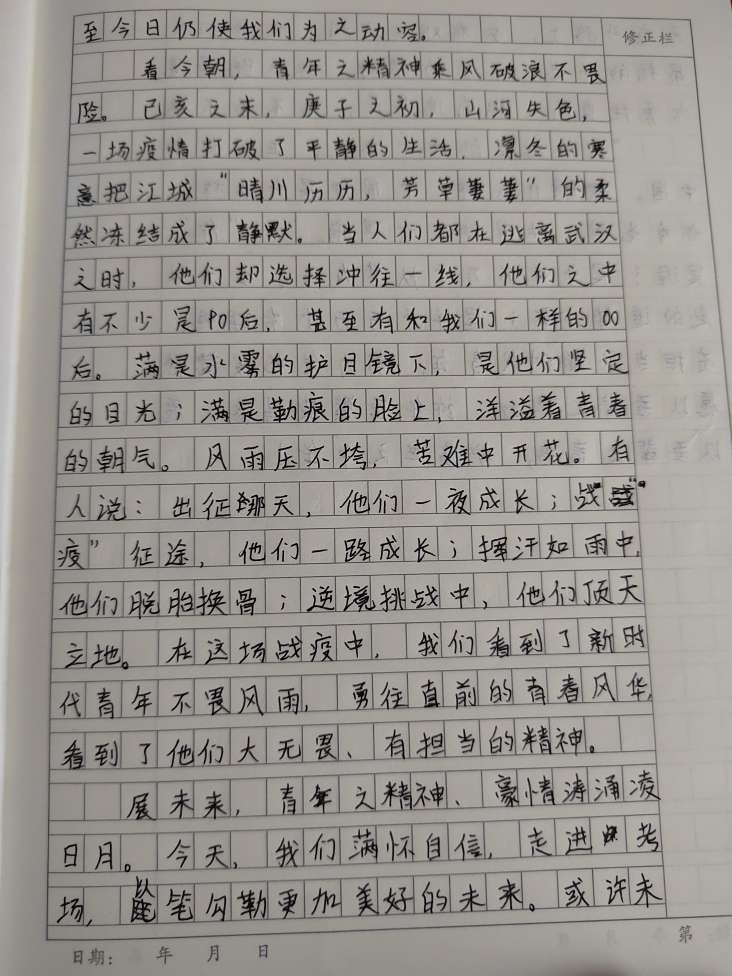 至今日仍使我们为之动容。
修正栏
看今朝，青年之精神乘风破浪不畏
险。己亥之末，庚子之初，山河失色，
一场疫情打破了平静的生活，凛冬的寒
意把江城“晴川历历，芳草萋萋”的柔
然冻结成了静默。当人们都在逃离武汉
之时，他们却选择冲往一线，他们之中
有不少是90后，甚至有和我们一样的00
后。满是水雾的护目镜下，是他们坚定
的目光；满是勒痕的脸上，洋溢着青春
的朝气。风雨压不垮，苦难中开花。有
人说：出征那天，他们一夜成长；战“
疫”征途，他们一路成长；挥汗如雨中，
他们脱胎换骨；逆境挑战中，他们顶天
立地。在这场战疫中，我们看到了新时
代青年不畏风雨，勇往直前的青春风华，
看到了他们大无畏、有担当的精神。
展未来，青年之精神、豪情涛涌凌
日月。今天，我们满怀自信，走进中考
场，以笔勾勒更加美好的未来。或许未
日期： 年 月 日
第